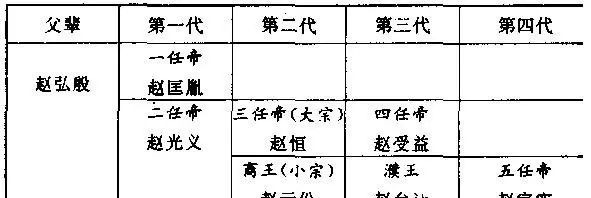 父辈 第一代 第二代 第三代 第四代
一任帝
赵弘殷 赵匡胤
二任帝 三任帝(大宗) 四任帝
赵光义 赵恒 赵受益
商王(小宗) 濮王 五任帝